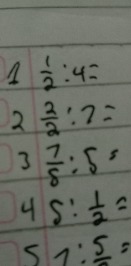 1 1/2 : 4 =
2 2/2 : 7 =
3 7/5 : 5 =
4 5 : 1/2 =
5 7 : 5/2 =